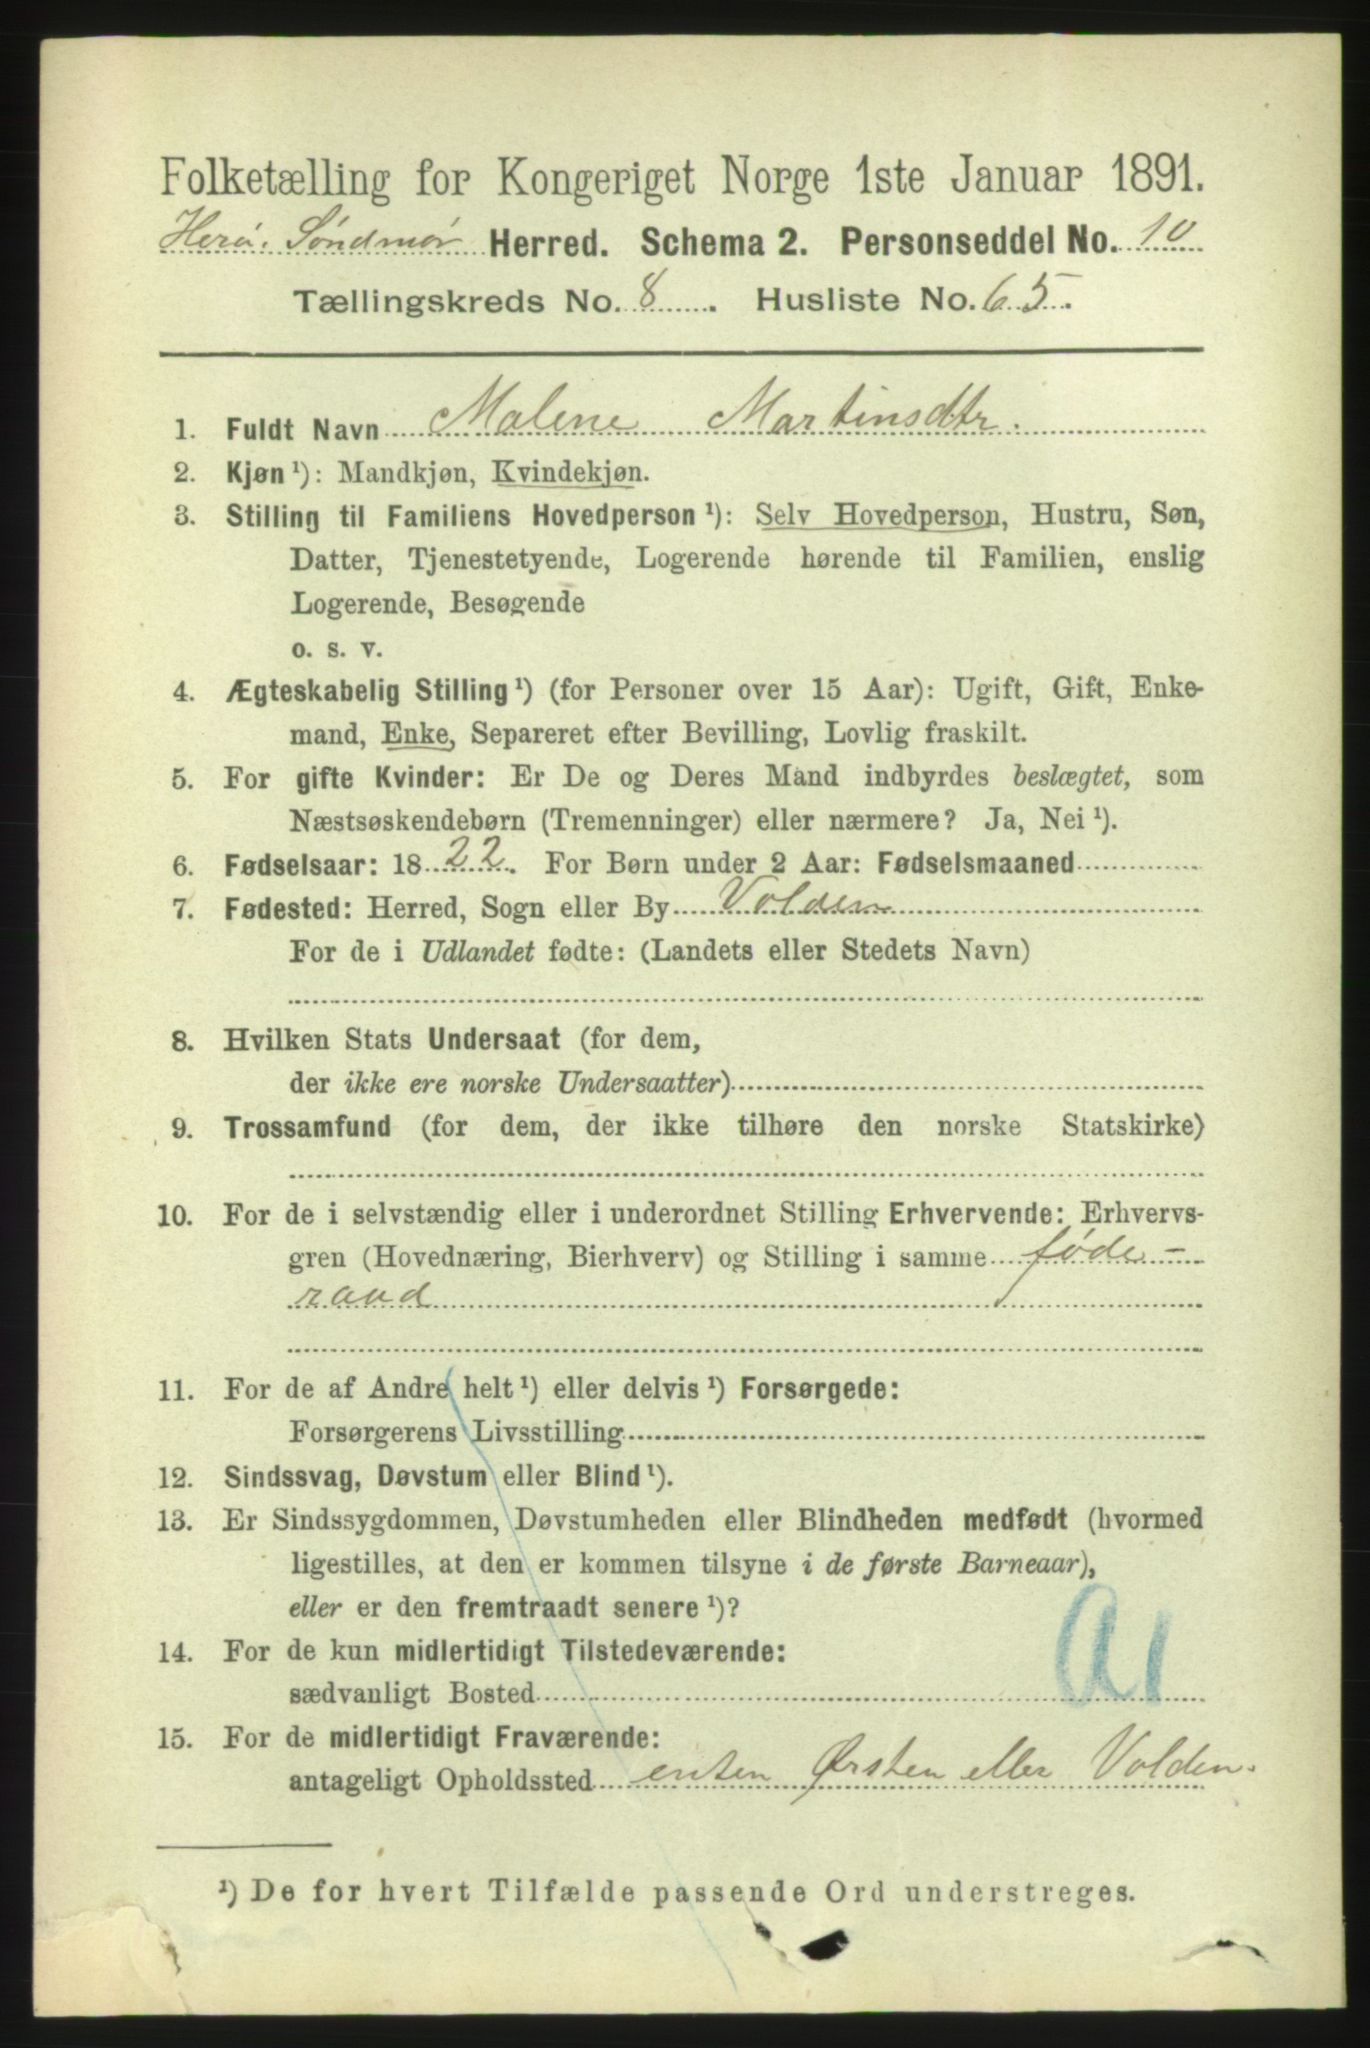 Folketælling for Kongeriget Norge 1ste Januar 1891.
Herø. Søndmør Herred. Schema 2. Personseddel No. 10
Tællingskreds No. 8. Husliste No. 65.
1. Fuldt Navn Malene Martinsdtr.
2. Kjøn ¹): Mandkjøn, Kvindekjøn.
3. Stilling til Familiens Hovedperson ¹): Selv Hovedperson, Hustru, Søn,
Datter, Tjenestetyende, Logerende hørende til Familien, enslig
Logerende, Besøgende
o. s. v.
4. Ægteskabelig Stilling ¹) (for Personer over 15 Aar): Ugift, Gift, Enke-
mand, Enke, Separeret efter Bevilling, Lovlig fraskilt.
5. For gifte Kvinder: Er De og Deres Mand indbyrdes beslægtet, som
Næstsøskendebørn (Tremenninger) eller nærmere? Ja, Nei ¹).
6. Fødselsaar: 1822. For Børn under 2 Aar: Fødselsmaaned
7. Fødested: Herred, Sogn eller By Volden
For de i Udlandet fødte: (Landets eller Stedets Navn)
8. Hvilken Stats Undersaat (for dem,
der ikke ere norske Undersaatter)
9. Trossamfund (for dem, der ikke tilhøre den norske Statskirke)
10. For de i selvstændig eller i underordnet Stilling Erhvervende: Erhvervs-
gren (Hovednæring, Bierhverv) og Stilling i samme føde-
raad
11. For de af Andre helt ¹) eller delvis ¹) Forsørgede:
Forsørgerens Livsstilling
12. Sindssvag, Døvstum eller Blind ¹).
13. Er Sindssygdommen, Døvstumheden eller Blindheden medfødt (hvormed
ligestilles, at den er kommen tilsyne i de første Barneaar),
eller er den fremtraadt senere ¹)?
A1
14. For de kun midlertidigt Tilstedeværende:
sædvanligt Bosted
15. For de midlertidigt Fraværende:
antageligt Opholdssted enten Ørsten eller Volden.
¹) De for hvert Tilfælde passende Ord understreges.